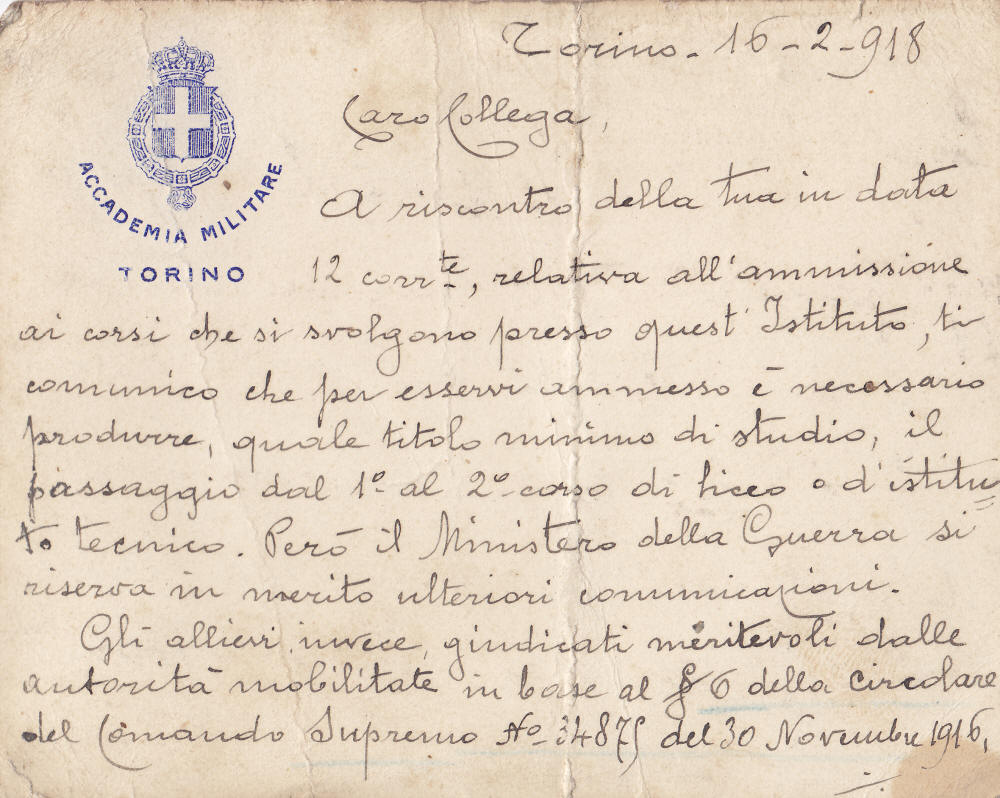 Torino - 16-2-918
ACCADEMIA MILITARE
TORINO
Caro Collega,
A riscontro della tua in data
12 corrte, relativa all'ammissione
ai corsi che si svolgono presso quest'Istituto, ti
comunico che per esservi ammesso è necessario
produrre, quale titolo minimo di studio, il
passaggio dal 1º al 2º corso di liceo o d'istitu=
to tecnico. Però il Ministero della Guerra si
riserva in merito ulteriori comunicazioni.
Gli allievi invece, giudicati meritevoli dalle
autorità mobilitate in base al § 6 della circolare
del Comando Supremo No 34875 del 30 Novembre 1916,